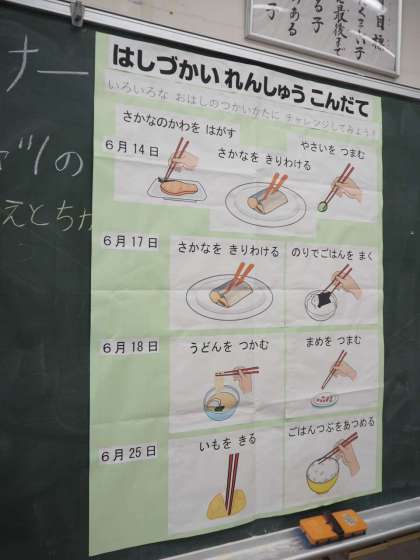 目標
くまい子
最後まで
る子
ある
子
ナー
ツの
えとちか
はしづかい れんしゅう こんだて
いろいろな おはしのつかいかたに チャレンジしてみよう！
6月14日
さかなのかわを はがす
さかなを きりわける
やさいを つまむ
6月17日
さかなを きりわける
のりでごはんを まく
6月18日
うどんを つかむ
まめを つまむ
6月25日
いもを きる
ごはんつぶをあつめる